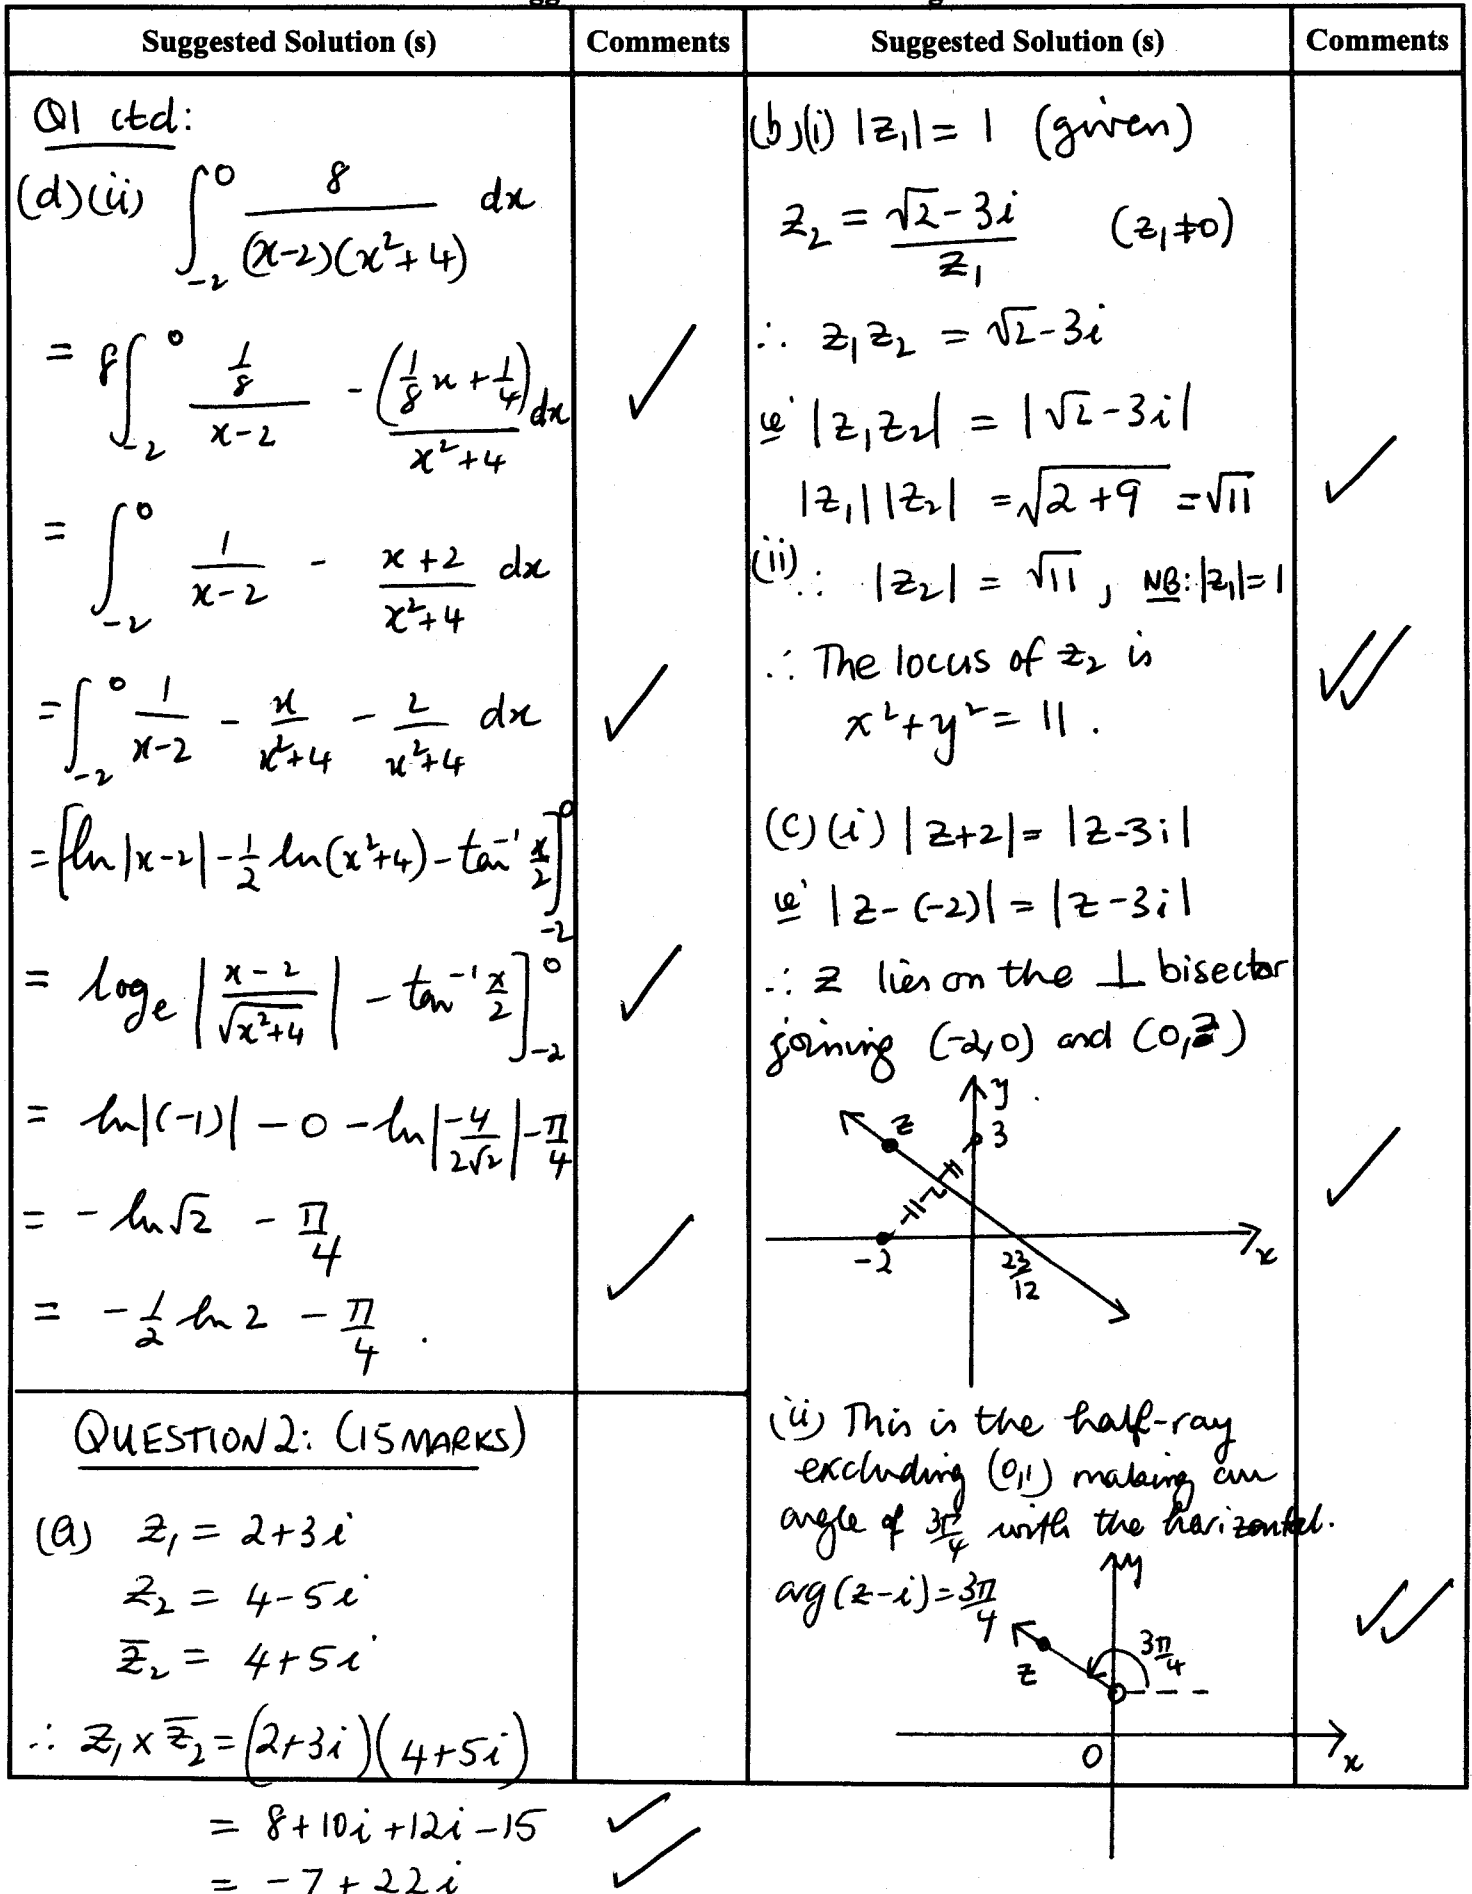 Suggested Solution (s)
Comments
Q1 ctd:
(d)(ii) ∫_{-2}^{0} 8/((x-2)(x²+4)) dx
= 8∫_{-2}^{0} (1/8)/(x-2) - (1/8 x + 1/4)/(x²+4) dx
= ∫_{-2}^{0} 1/(x-2) - (x+2)/(x²+4) dx
= ∫_{-2}^{0} 1/(x-2) - x/(x²+4) - 2/(x²+4) dx
= [ln|x-2| - 1/2 ln(x²+4) - tan⁻¹ x/2]_{-2}^{0}
= log_e |(x-2)/√(x²+4)| - tan⁻¹ x/2 ]_{-2}^{0}
= ln|(-1)| - 0 - ln|-4/(2√2)| - π/4
= - ln√2 - π/4
= - 1/2 ln 2 - π/4 .
QUESTION 2: (15 MARKS)
(a) z₁ = 2+3i
z₂ = 4-5i
z̄₂ = 4+5i
∴ z₁ × z̄₂ = (2+3i)(4+5i)
= 8+10i+12i-15
= -7+22i
Suggested Solution (s)
Comments
(b)(i) |z₁| = 1 (given)
z₂ = (√2-3i)/z₁ (z₁≠0)
∴ z₁z₂ = √2-3i
ie |z₁z₂| = |√2-3i|
|z₁||z₂| = √(2+9) = √11
(ii) ∴ |z₂| = √11, NB: |z₁|=1
∴ The locus of z₂ is
x²+y² = 11.
(c)(i) |z+2| = |z-3i|
ie |z-(-2)| = |z-3i|
∴ z lies on the ⊥ bisector
joining (-2,0) and (0,3)
y
z
3
-2
23/12
x
(ii) This is the half-ray
excluding (0,1) making an
angle of 3π/4 with the horizontal.
arg(z-i) = 3π/4
y
z
3π/4
0
x